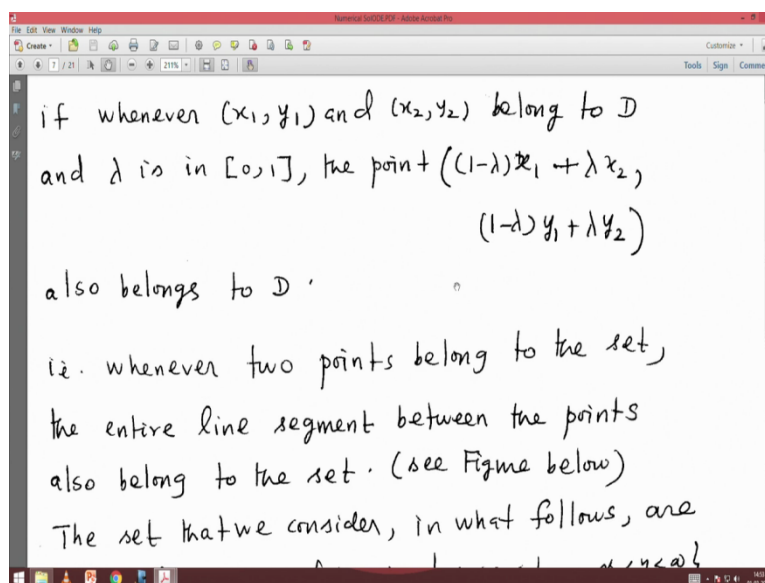 Numerical SolODE.PDF - Adobe Acrobat Pro
File Edit View Window Help
Create Customize
7 / 21 211% Tools Sign Comme
if whenever (x₁, y₁) and (x₂, y₂) belong to D
and λ is in [0,1], the point ((1-λ)x₁ + λx₂,
(1-λ)y₁ + λy₂)
also belongs to D.
ie. whenever two points belong to the set,
the entire line segment between the points
also belong to the set. (see Figure below)
The set that we consider, in what follows, are